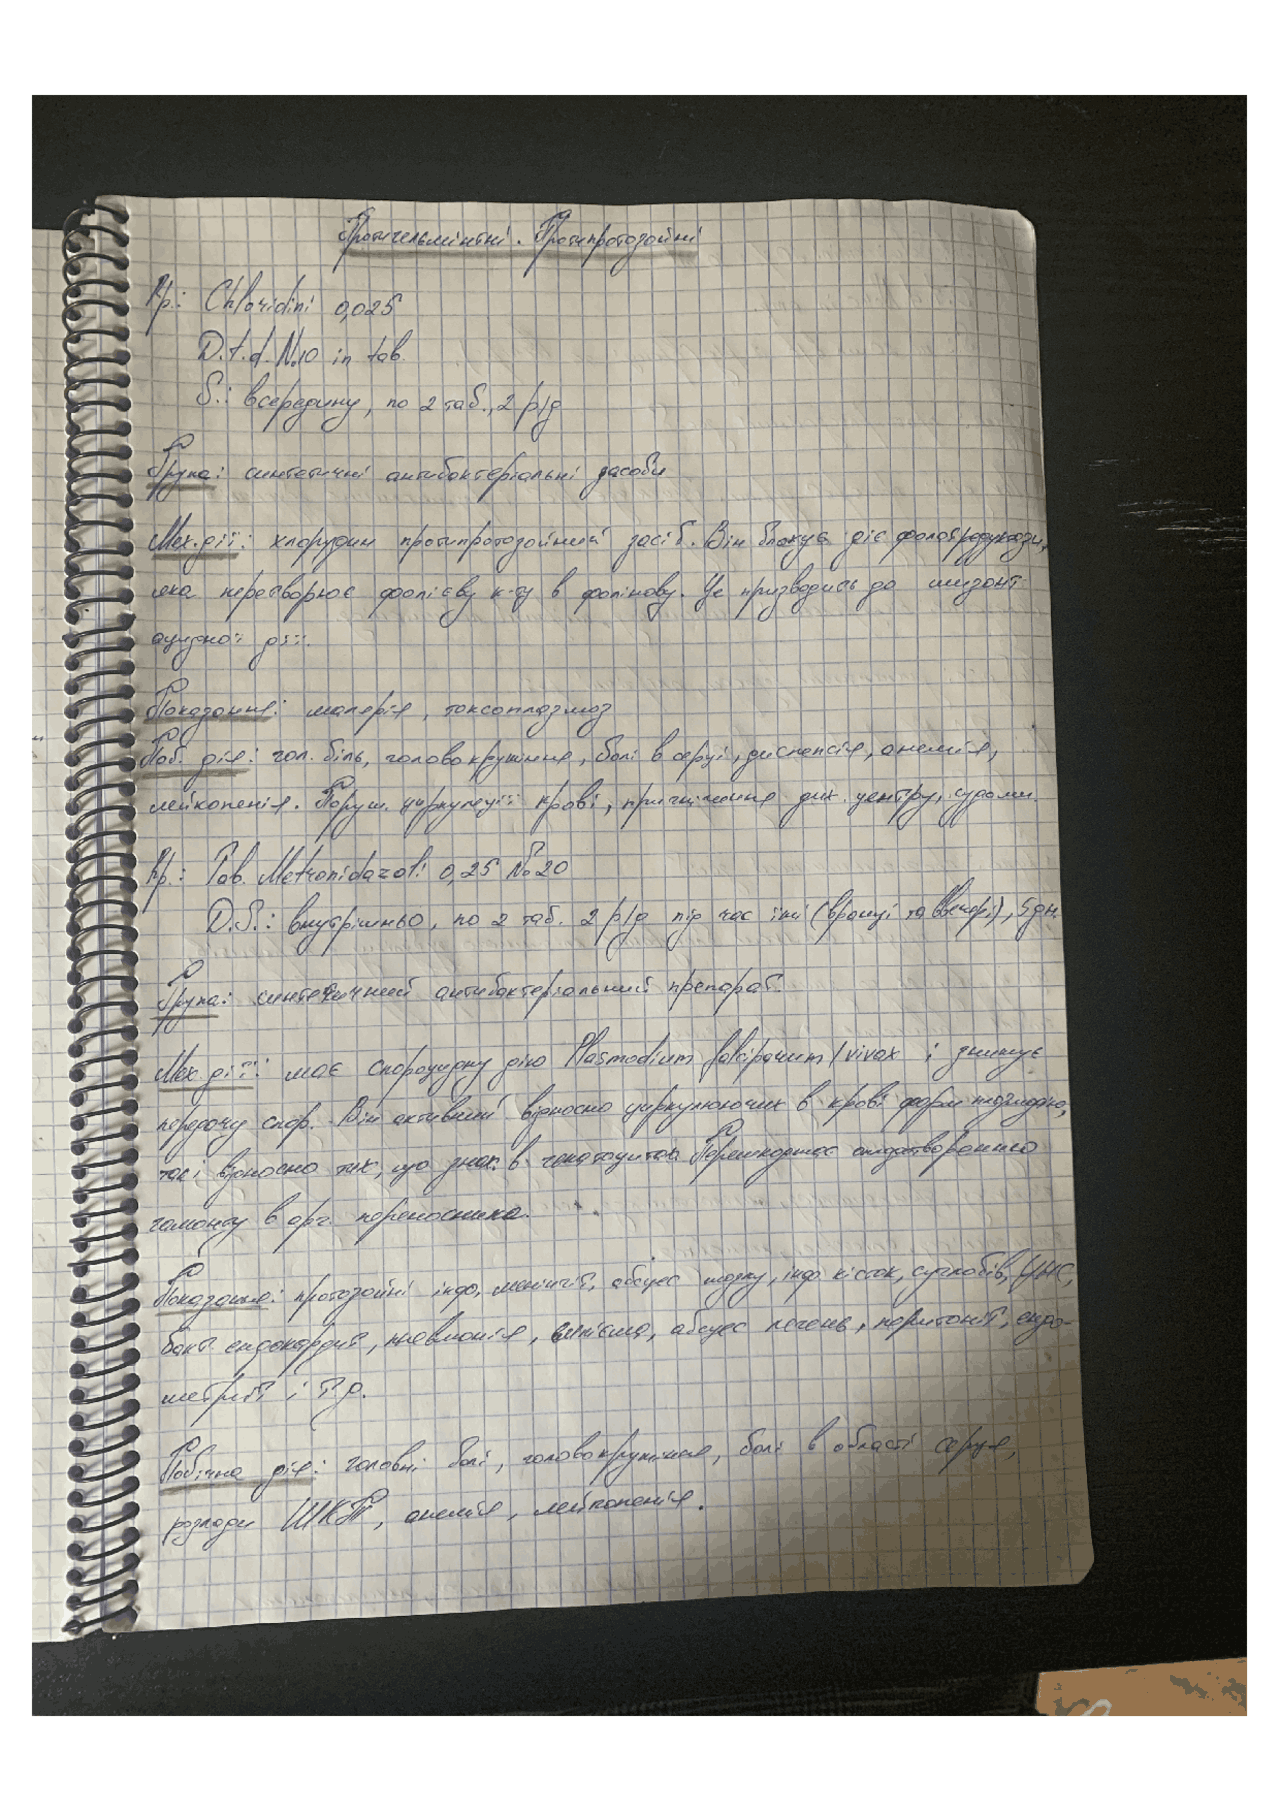 Протигельмінтні. Протипротозойні
Rp.: Chloridini 0,025
D.t.d. N.10 in tab.
S.: всередину, по 2 таб., 2 р/д
Група: синтетичні антибактеріальні засоби
Мех. дії: хлоридин протипротозойний засіб. Він блокує дію фолатредуктази,
яка перетворює фолієву к-ту в фолінову. Це призводить до шизонт
оцидної дії.
Показання: малерія, токсоплазмоз
Поб. дія: гол. біль, головокружіння, болі в серці, диспепсія, анемія,
лейкопенія. Поруш. циркуляції крові, пригнічення дих. центру, судоми.
Rp.: Tab. Metronidazoli 0,25 №20
D.S.: внутрішньо, по 2 таб. 2 р/д під час їжі (вранці та ввечері), 5 дн.
Група: синтетичний антибактеріальний препарат.
Мех. дії: має спороцидну дію Plasmodium falciparum/vivax і знижує
передачу спор. Він активний відносно циркулюючих в крові форм
так і відносно тих, що знах. в гепатоцитах. Перешкоджає
гамонту в орг. переносника.
Показання: протозойні інф., менінгіт, абсцес мозку, інф. кісток, суглобів, ЦНС,
бакт. ендокардит, пневмонія, емпієма, абсцес печень, перитоніт, ендо-
метрит і т.д.
Побічна дія: головні болі, головокружіння, болі в області серця,
розлади ШКТ, анемія, лейкопенія.